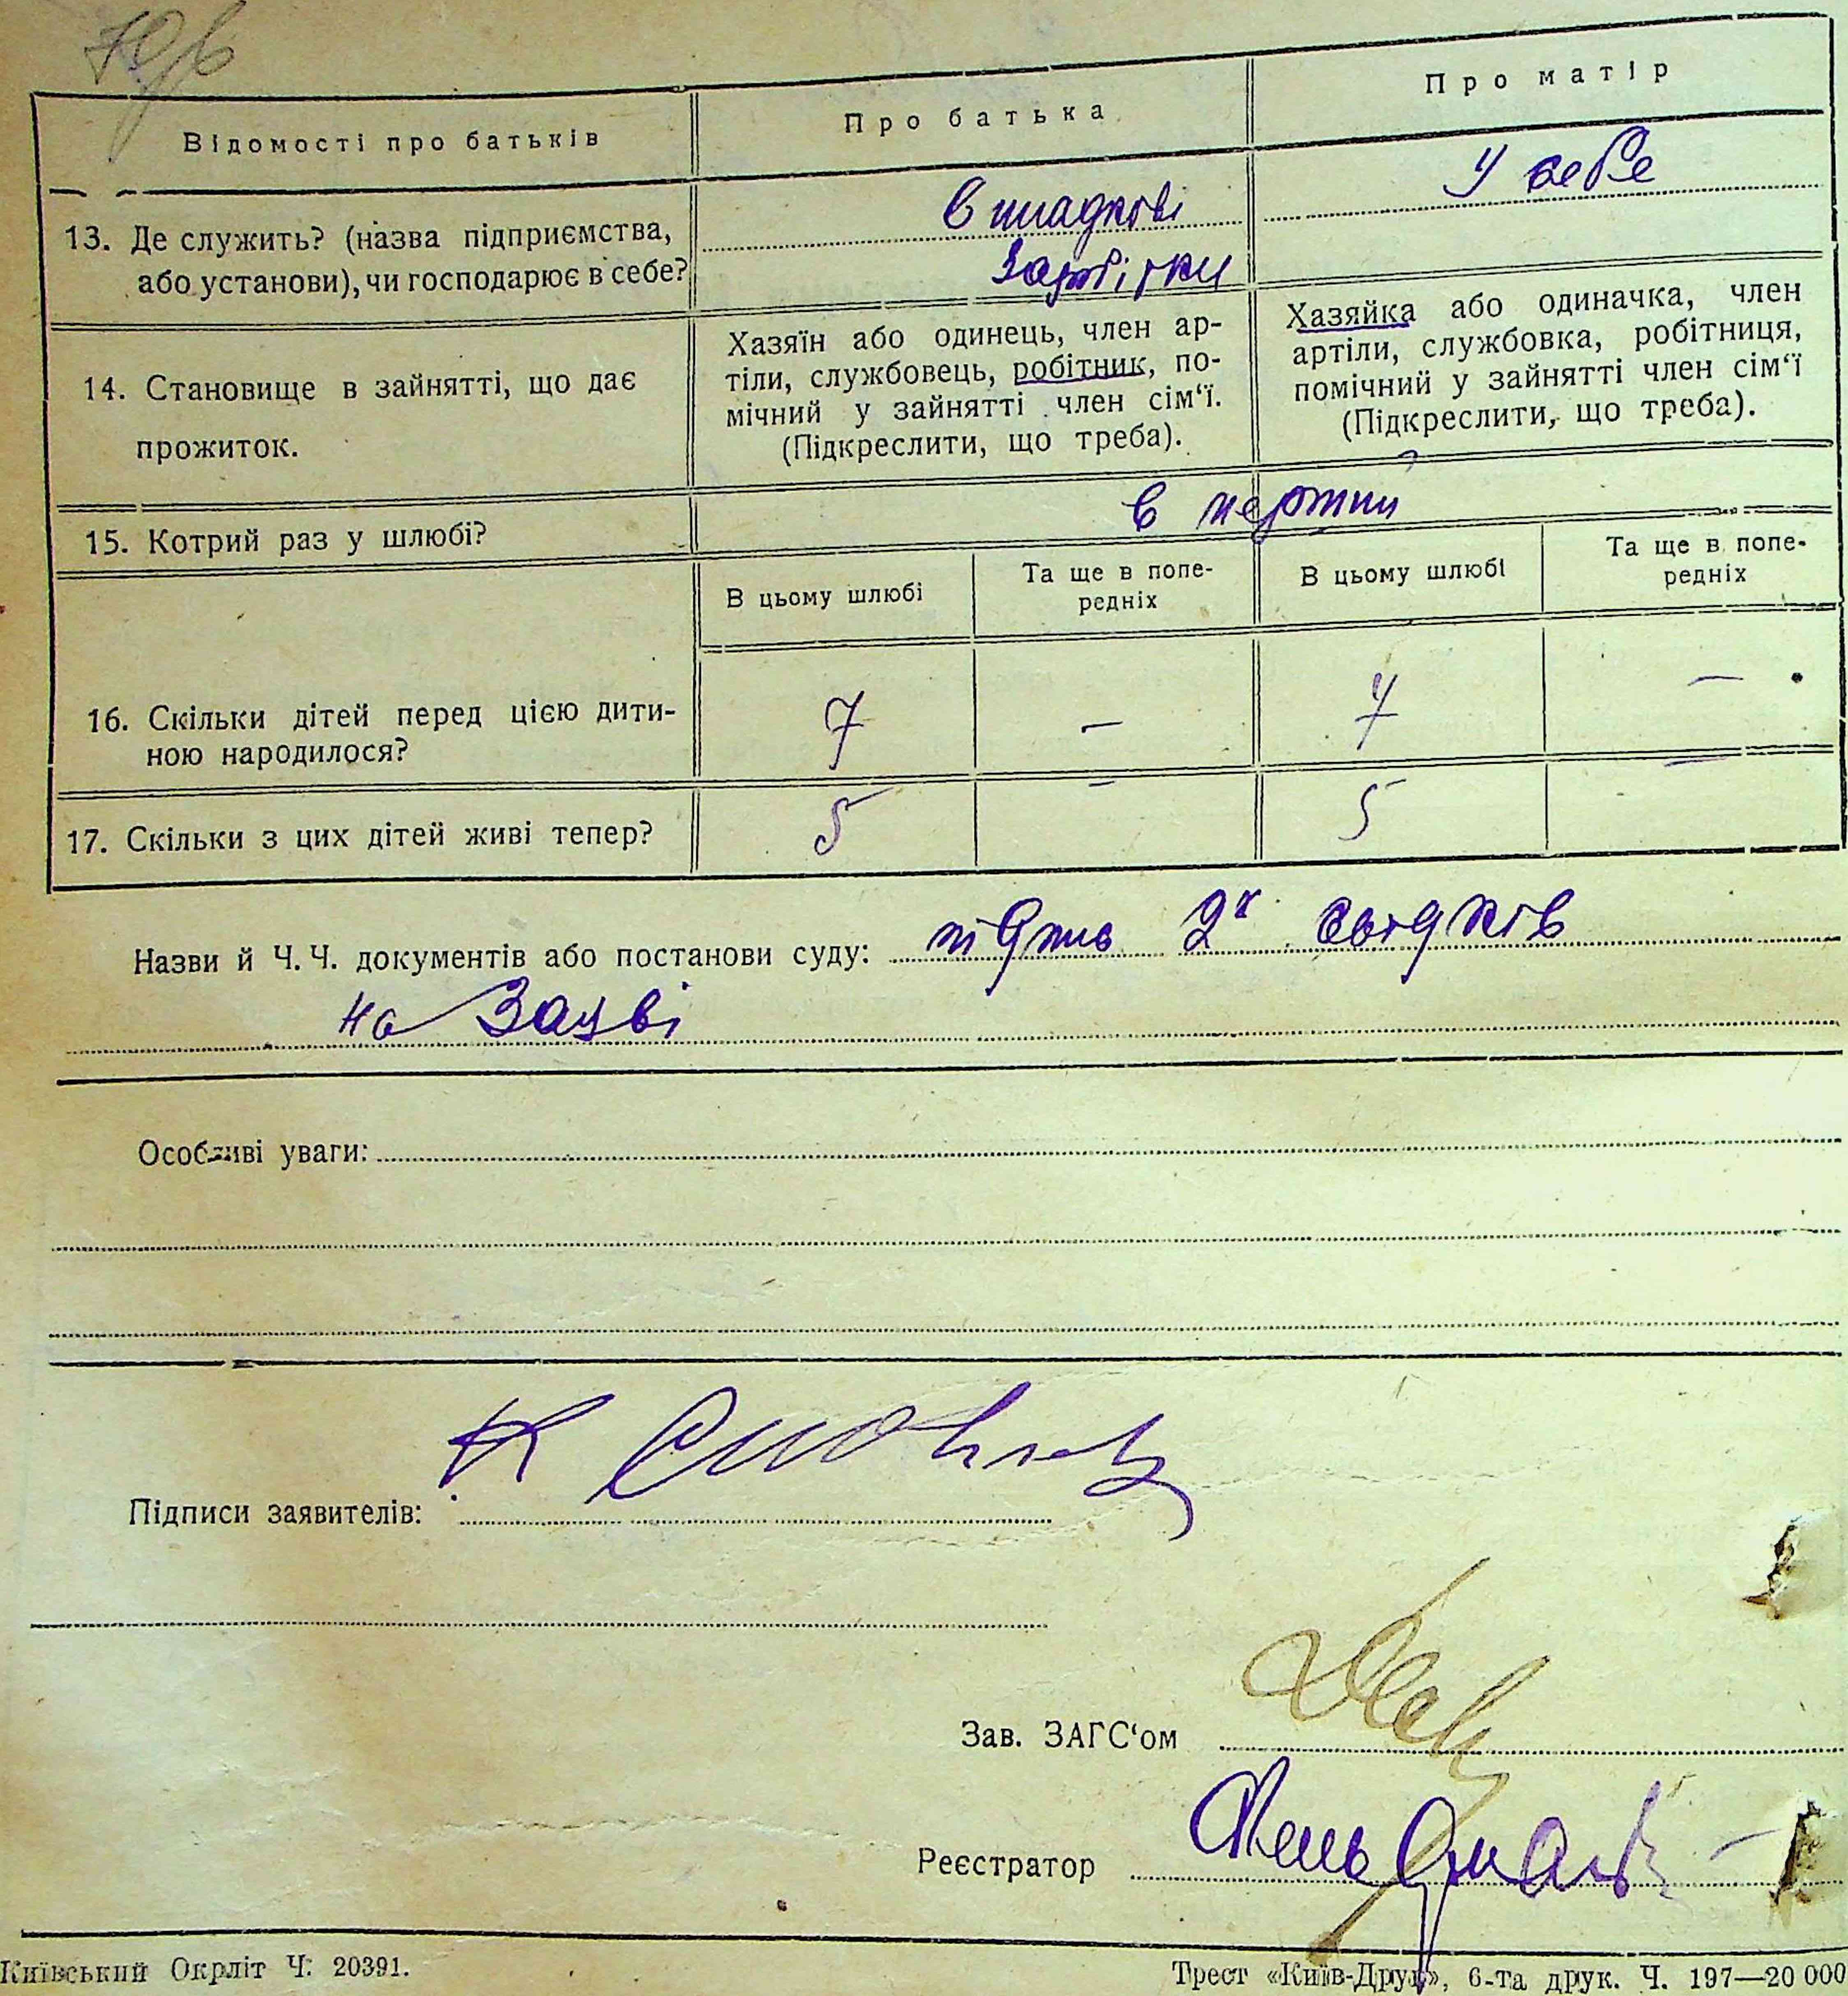 Відомості про батьків
Про батька
Про матір
13. Де служить? (назва підприємства,
або установи), чи господарює в себе?
Випадкові
Заробітки
У себе
14. Становище в зайнятті, що дає
прожиток.
Хазяїн або одинець, член ар-
тіли, службовець, робітник, по-
мічний у зайнятті член сім‘ї.
(Підкреслити, що треба).
Хазяйка або одиначка, член
артіли, службовка, робітниця,
помічний у зайнятті член сім‘ї
(Підкреслити, що треба).
15. Котрий раз у шлюбі?
в перший
В цьому шлюбі
Та ще в попе-
редніх
В цьому шлюбі
Та ще в попе-
редніх
16. Скільки дітей перед цією дити-
ною народилося?
7 — 7 —
17. Скільки з цих дітей живі тепер?
5 — 5 —
Назви й Ч. Ч. документів або постанови суду: підпис 2х свідків
на Заяві
Особливі уваги:
Підписи заявителів:
Зав. ЗАГС‘ом
Реєстратор
Київський Окрліт Ч. 20391.
Трест «Київ-Друк», 6-та друк. Ч. 197—20 000